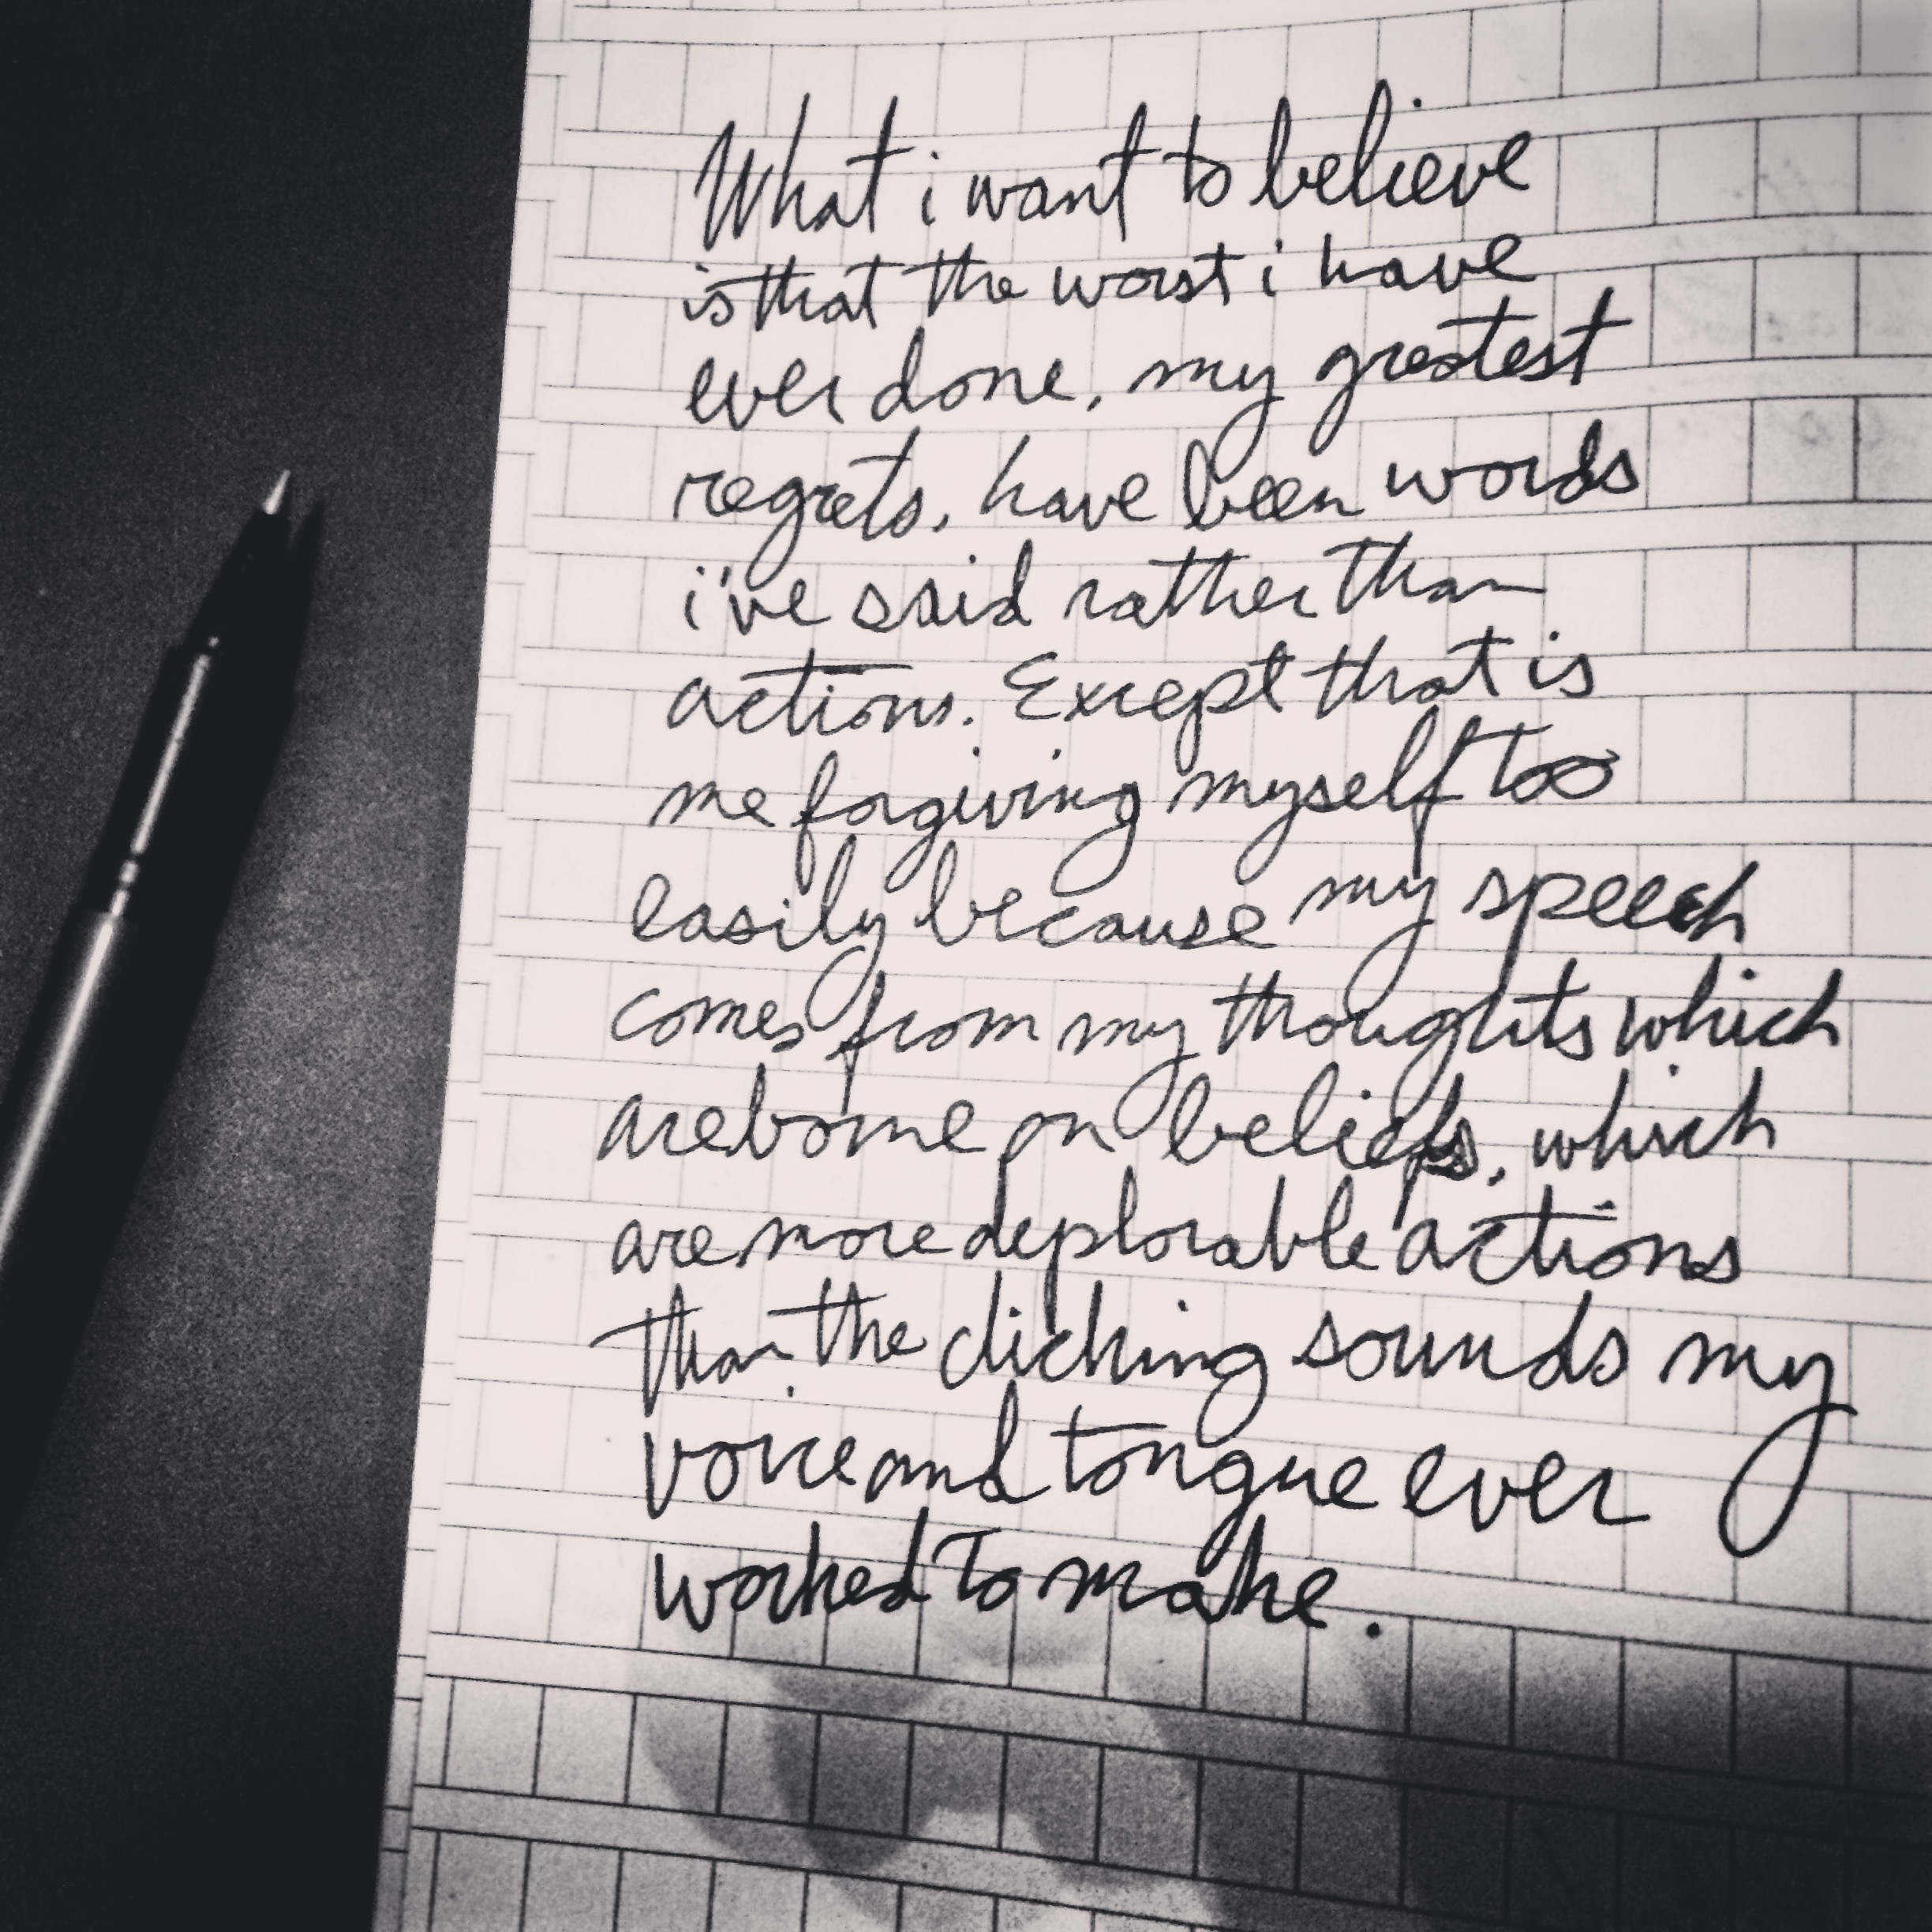 What i want to believe
is that the worst i have
ever done, my greatest
regrets, have been words
i've said rather than
actions. Except that is
me forgiving myself too
easily because my speech
comes from my thoughts which
are borne on beliefs, which
are more deplorable actions
than the clicking sounds my
voice and tongue ever
worked to make.